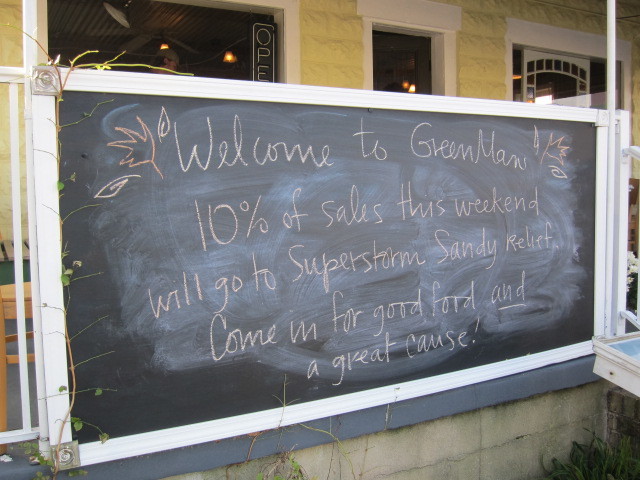 OPE
Welcome to GreenMan
10% of sales this weekend
will go to Superstorm Sandy Relief.
Come in for good food and
a great cause!